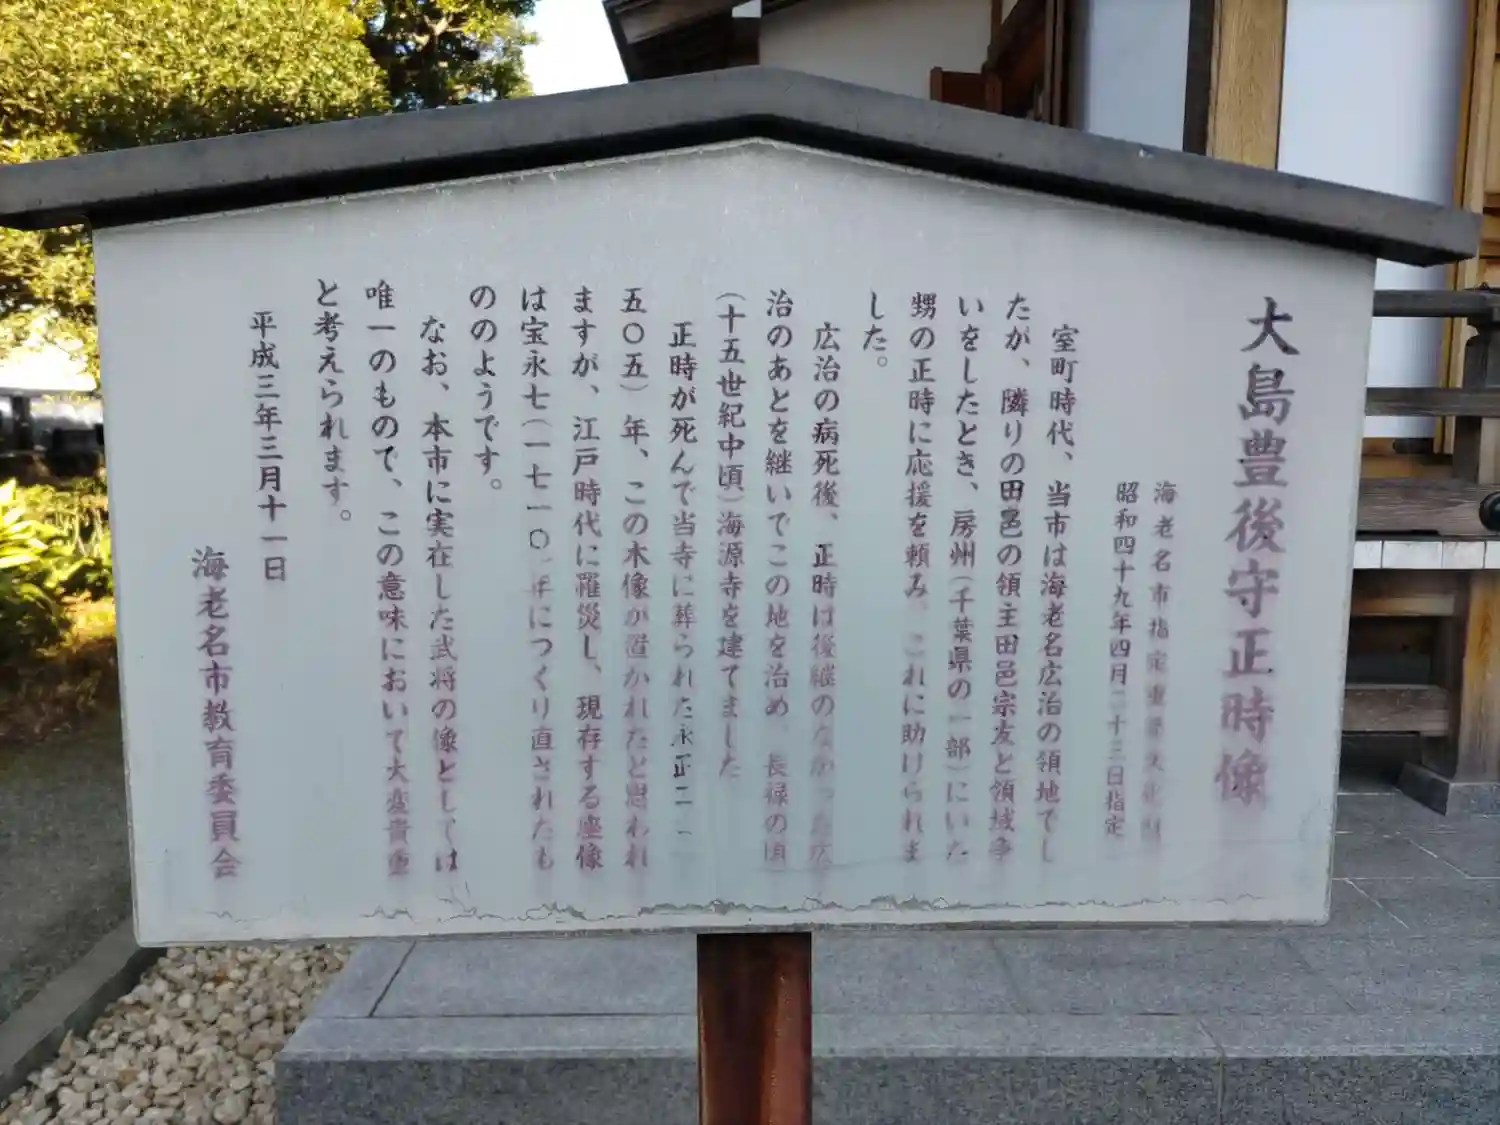 大島豊後守正時像
海老名市指定重要文化財
昭和四十九年四月二十三日指定
室町時代、当市は海老名広治の領地でし
たが、隣りの田邑の領主田邑宗友と領域争
いをしたとき、房州(千葉県の一部)にいた
甥の正時に応援を頼み、これに助けられま
した。
広治の病死後、正時は後継のなかった広
治のあとを継いでこの地を治め、長禄の頃
(十五世紀中頃)海源寺を建てました
正時が死んで当寺に葬られた永正二(一
五〇五)年、この木像が置かれたと思われ
ますが、江戸時代に羅災し、現存する座像
は宝永七(一七一〇)年につくり直されたも
ののようです。
なお、本市に実在した武将の像としては
唯一のもので、この意味において大変貴重
と考えられます。
平成三年三月十一日
海老名市教育委員会